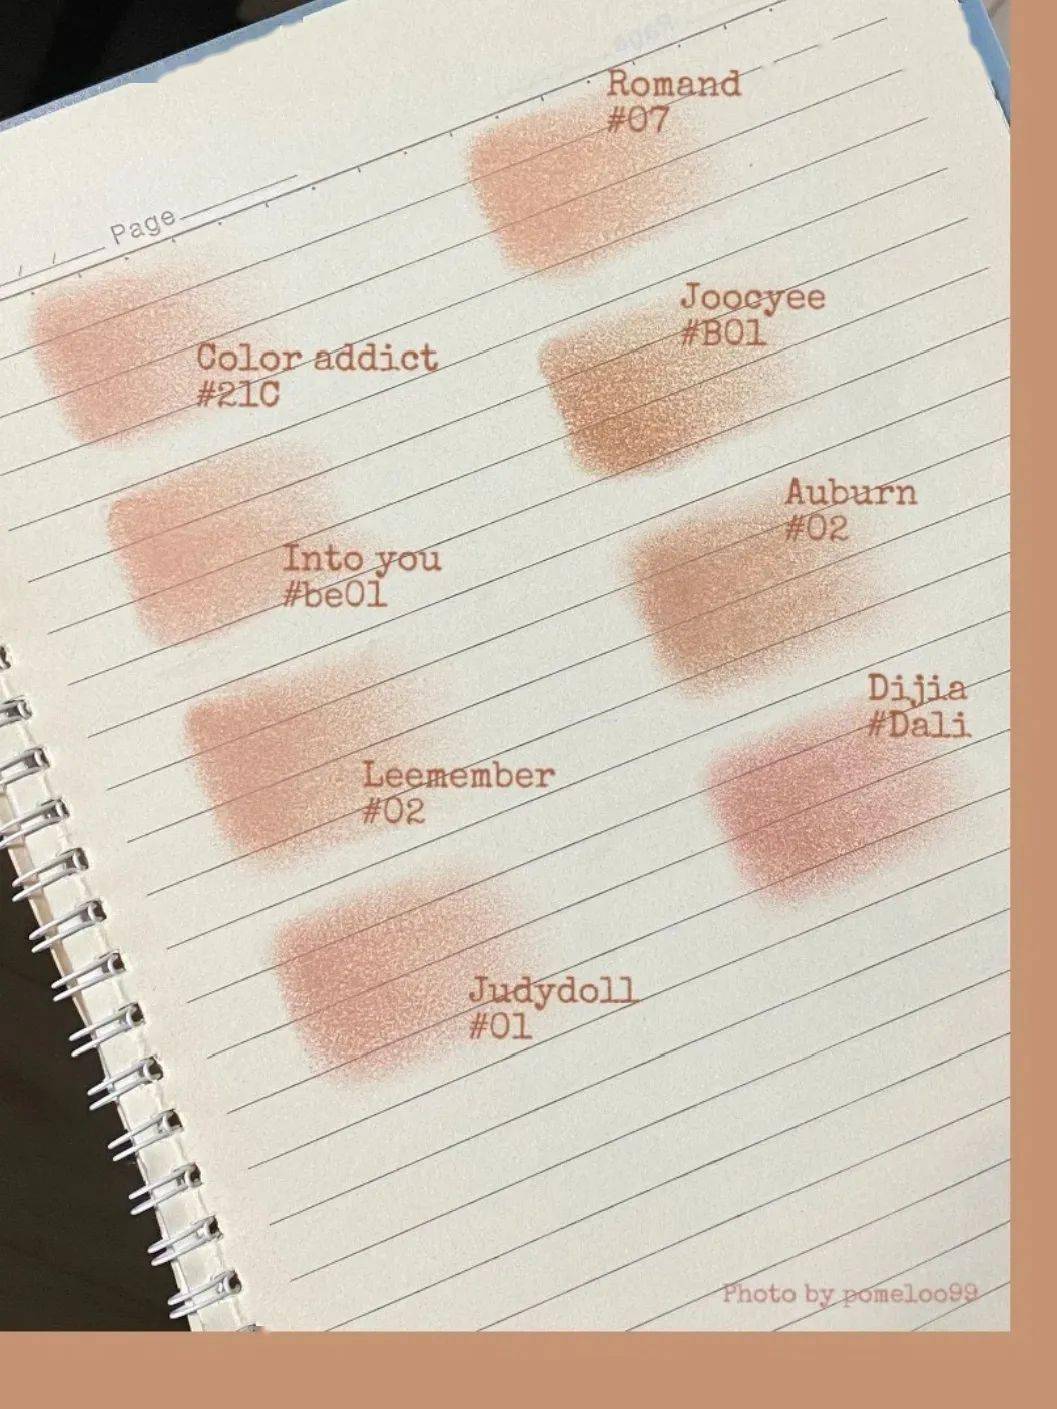 Page
Romand
#07
Color addict
#21C
Joocyee
#B01
Into you
#be01
Auburn
#02
Leemember
#02
Dijia
#Dali
Judydoll
#01
Photo by pomeloo99